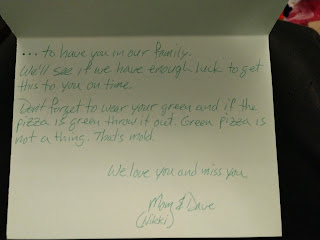 ... to have you in our family.
We'll see if we have enough luck to get
this to you on time.
Don't forget to wear your green and if the
pizza is green throw it out. Green pizza is
not a thing. That's mold.
We love you and miss you
Mom & Dave
(Nikki)